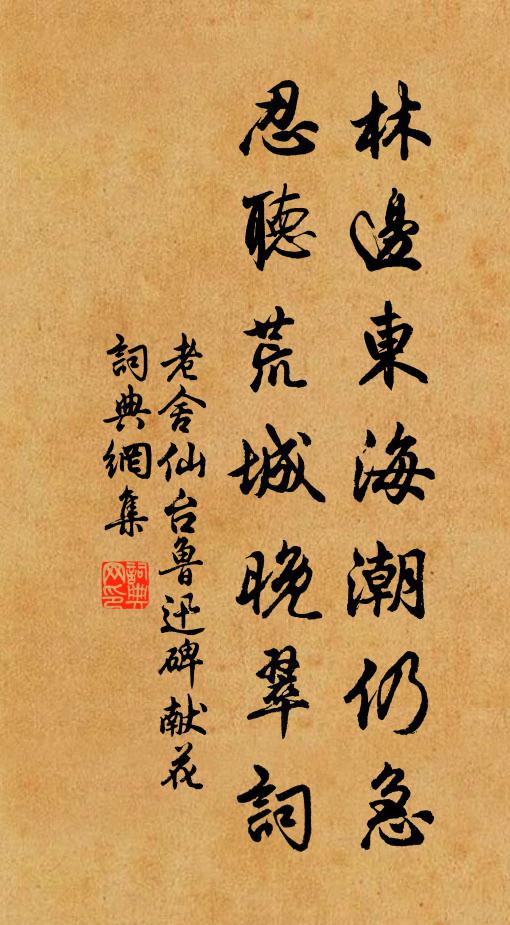 林邊東海潮仍急
忍聽荒城晚翠詞
老舍仙台鲁迅碑献花
詞典網集
詞典網印